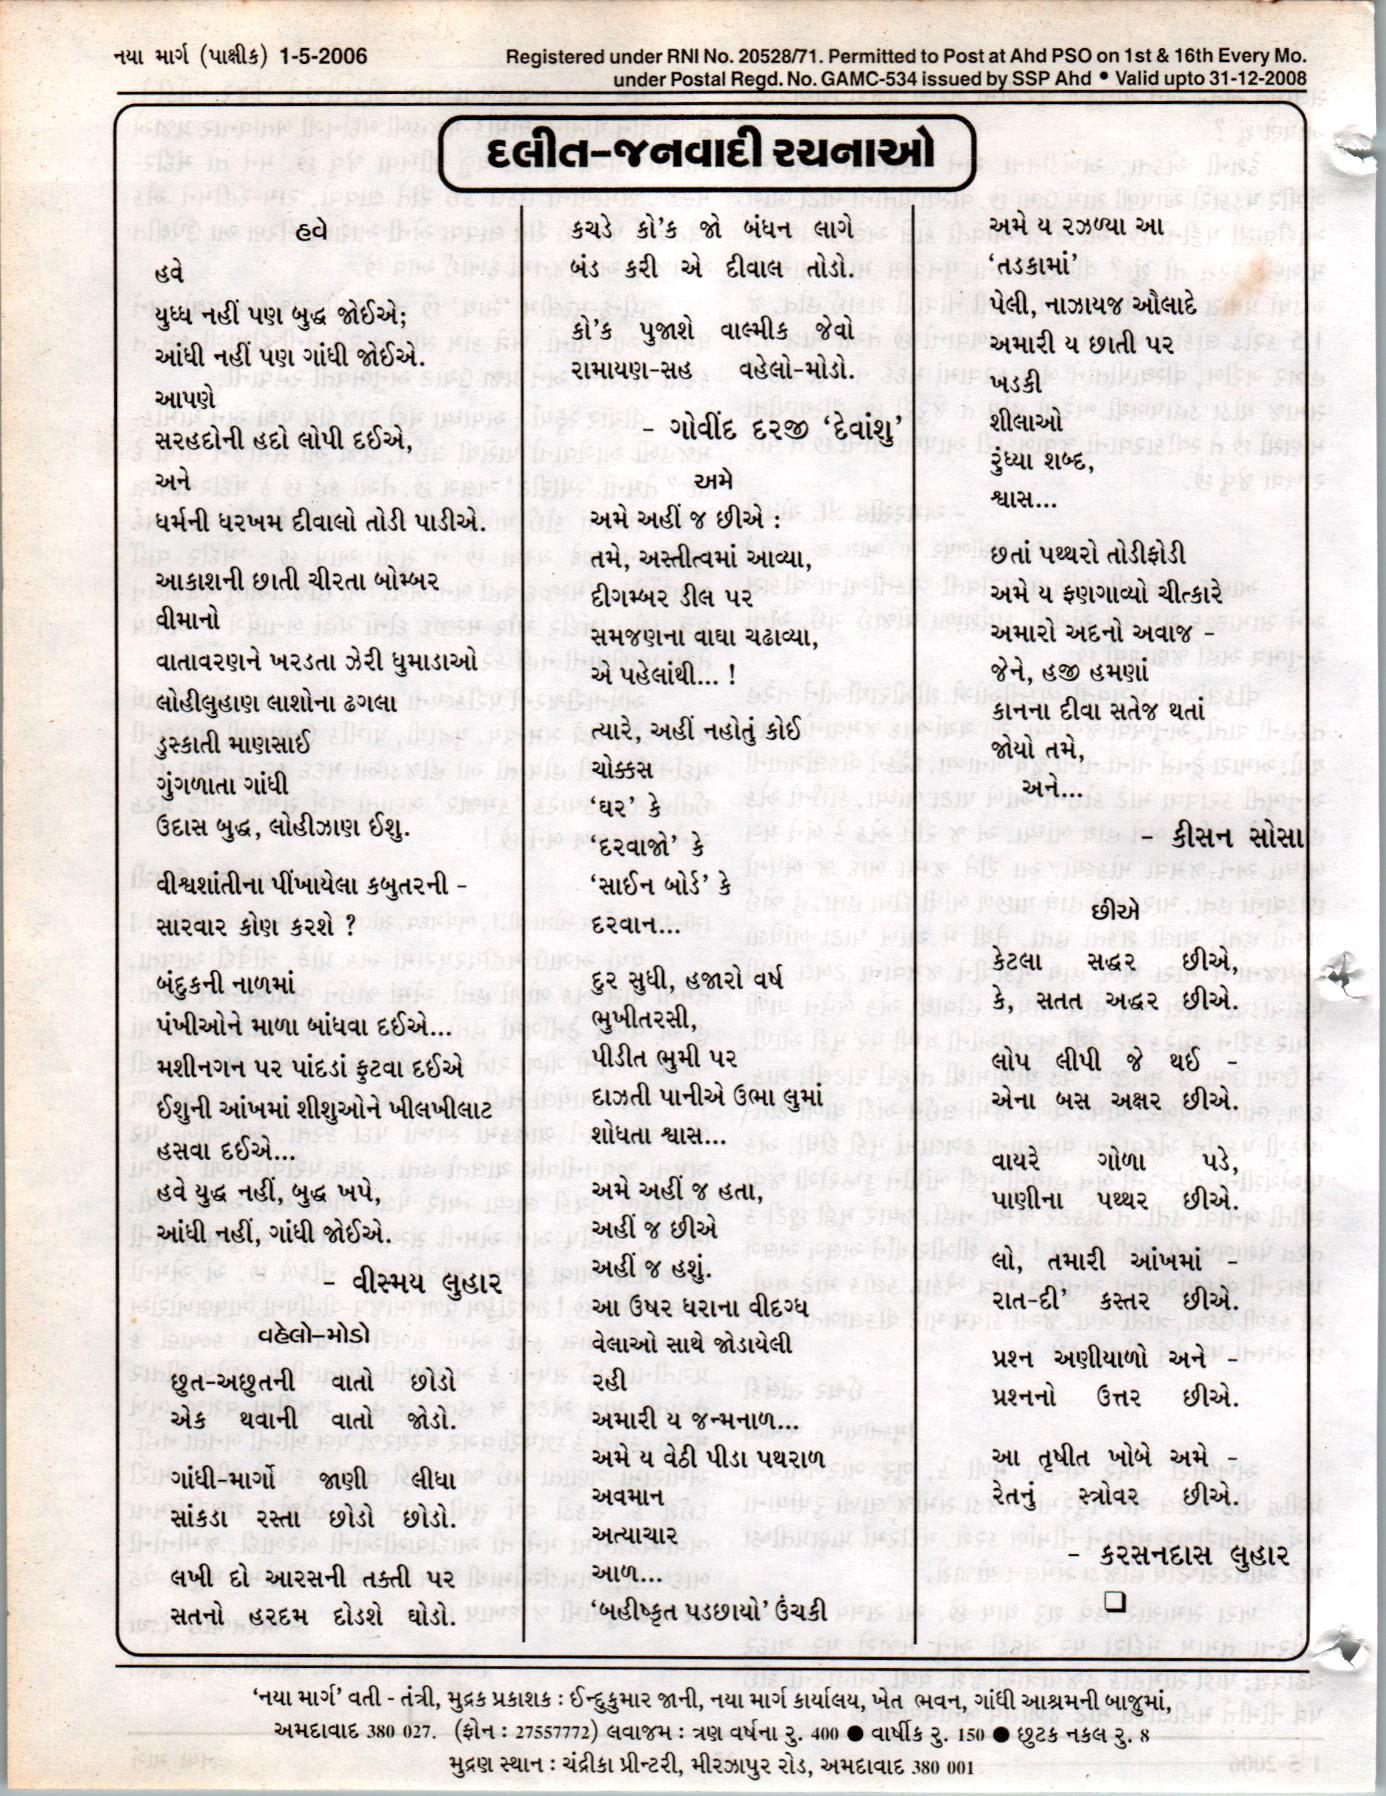 નયા માર્ગ (પાક્ષીક) 1-5-2006
Registered under RNI No. 20528/71. Permitted to Post at Ahd PSO on 1st & 16th Every Mo.
under Postal Regd. No. GAMC-534 issued by SSP Ahd • Valid upto 31-12-2008
દલીત-જનવાદી રચનાઓ
હવે
હવે
યુધ્ધ નહીં પણ બુદ્ધ જોઈએ;
આંધી નહીં પણ ગાંધી જોઈએ.
આપણે
સરહદોની હદો લોપી દઈએ,
અને
ધર્મની ધરખમ દીવાલો તોડી પાડીએ.
આકાશની છાતી ચીરતા બોમ્બર
વીમાનો
વાતાવરણને ખરડતા ઝેરી ધુમાડાઓ
લોહીલુહાણ લાશોના ઢગલા
ડુસ્કાતી માણસાઈ
ગુંગળાતા ગાંધી
ઉદાસ બુદ્ધ, લોહીઝાણ ઈશુ.
વીશ્વશાંતીના પીંખાયેલા કબુતરની -
સારવાર કોણ કરશે ?
બંદુકની નાળમાં
પંખીઓને માળા બાંધવા દઈએ...
મશીનગન પર પાંદડાં ફુટવા દઈએ
ઈશુની આંખમાં શીશુઓને ખીલખીલાટ
હસવા દઈએ...
હવે યુદ્ધ નહીં, બુદ્ધ ખપે,
આંધી નહીં, ગાંધી જોઈએ.
- વીસ્મય લુહાર
વહેલો-મોડો
છુત-અછુતની વાતો છોડો
એક થવાની વાતો જોડો.
ગાંધી-માર્ગો જાણી લીધા
સાંકડા રસ્તા છોડો છોડો.
લખી દો આરસની તક્તી પર
સતનો હરદમ દોડશે ઘોડો.
કચડે કો'ક જો બંધન લાગે
બંડ કરી એ દીવાલ તોડો.
કો'ક પુજાશે વાલ્મીક જેવો
રામાયણ-સહ વહેલો-મોડો.
- ગોવીંદ દરજી 'દેવાંશુ'
અમે
અમે અહીં જ છીએ :
તમે, અસ્તીત્વમાં આવ્યા,
દીગમ્બર ડીલ પર
સમજણના વાઘા ચઢાવ્યા,
એ પહેલાંથી... !
ત્યારે, અહીં નહોતું કોઈ
ચોક્કસ
'ઘર' કે
'દરવાજો' કે
'સાઈન બોર્ડ' કે
દરવાન...
દુર સુધી, હજારો વર્ષ
ભુખીતરસી,
પીડીત ભુમી પર
દાઝતી પાનીએ ઉભા લુમાં
શોધતા શ્વાસ...
અમે અહીં જ હતા,
અહીં જ છીએ
અહીં જ હશું.
આ ઉષર ધરાના વીદગ્ધ
વેલાઓ સાથે જોડાયેલી
રહી
અમારી ય જન્મનાળ...
અમે ય વેઠી પીડા પથરાળ
અવમાન
અત્યાચાર
આળ...
'બહીષ્કૃત પડછાયો' ઉંચકી
અમે ય રઝળ્યા આ
'તડકામાં'
પેલી, નાઝાયજ ઔલાદે
અમારી ય છાતી પર
ખડકી
શીલાઓ
રુંધ્યા શબ્દ,
શ્વાસ...
છતાં પથ્થરો તોડીફોડી
અમે ય ફણગાવ્યો ચીત્કારે
અમારો અદનો અવાજ -
જેને, હજી હમણાં
કાનના દીવા સતેજ થતાં
જોયો તમે,
અને...
- કીસન સોસા
છીએ
કેટલા સદ્ધર છીએ,
કે, સતત અદ્ધર છીએ.
લોપ લીપી જે થઈ -
એના બસ અક્ષર છીએ.
વાયરે ગોળા પડે,
પાણીના પથ્થર છીએ.
લો, તમારી આંખમાં -
રાત-દી' કસ્તર છીએ.
પ્રશ્ન અણીયાળો અને -
પ્રશ્નનો ઉત્તર છીએ.
આ તૃષીત ખોબે અમે -
રેતનું સ્ત્રોવર છીએ.
- કરસનદાસ લુહાર
❑
'નયા માર્ગ' વતી - તંત્રી, મુદ્રક પ્રકાશક : ઈન્દુકુમાર જાની, નયા માર્ગ કાર્યાલય, ખેત ભવન, ગાંધી આશ્રમની બાજુમાં,
અમદાવાદ 380 027. (ફોન : 27557772) લવાજમ : ત્રણ વર્ષના રુ. 400 ● વાર્ષીક રુ. 150 ● છુટક નકલ રુ. 8
મુદ્રણ સ્થાન : ચંદ્રીકા પ્રીન્ટરી, મીરઝાપુર રોડ, અમદાવાદ 380 001